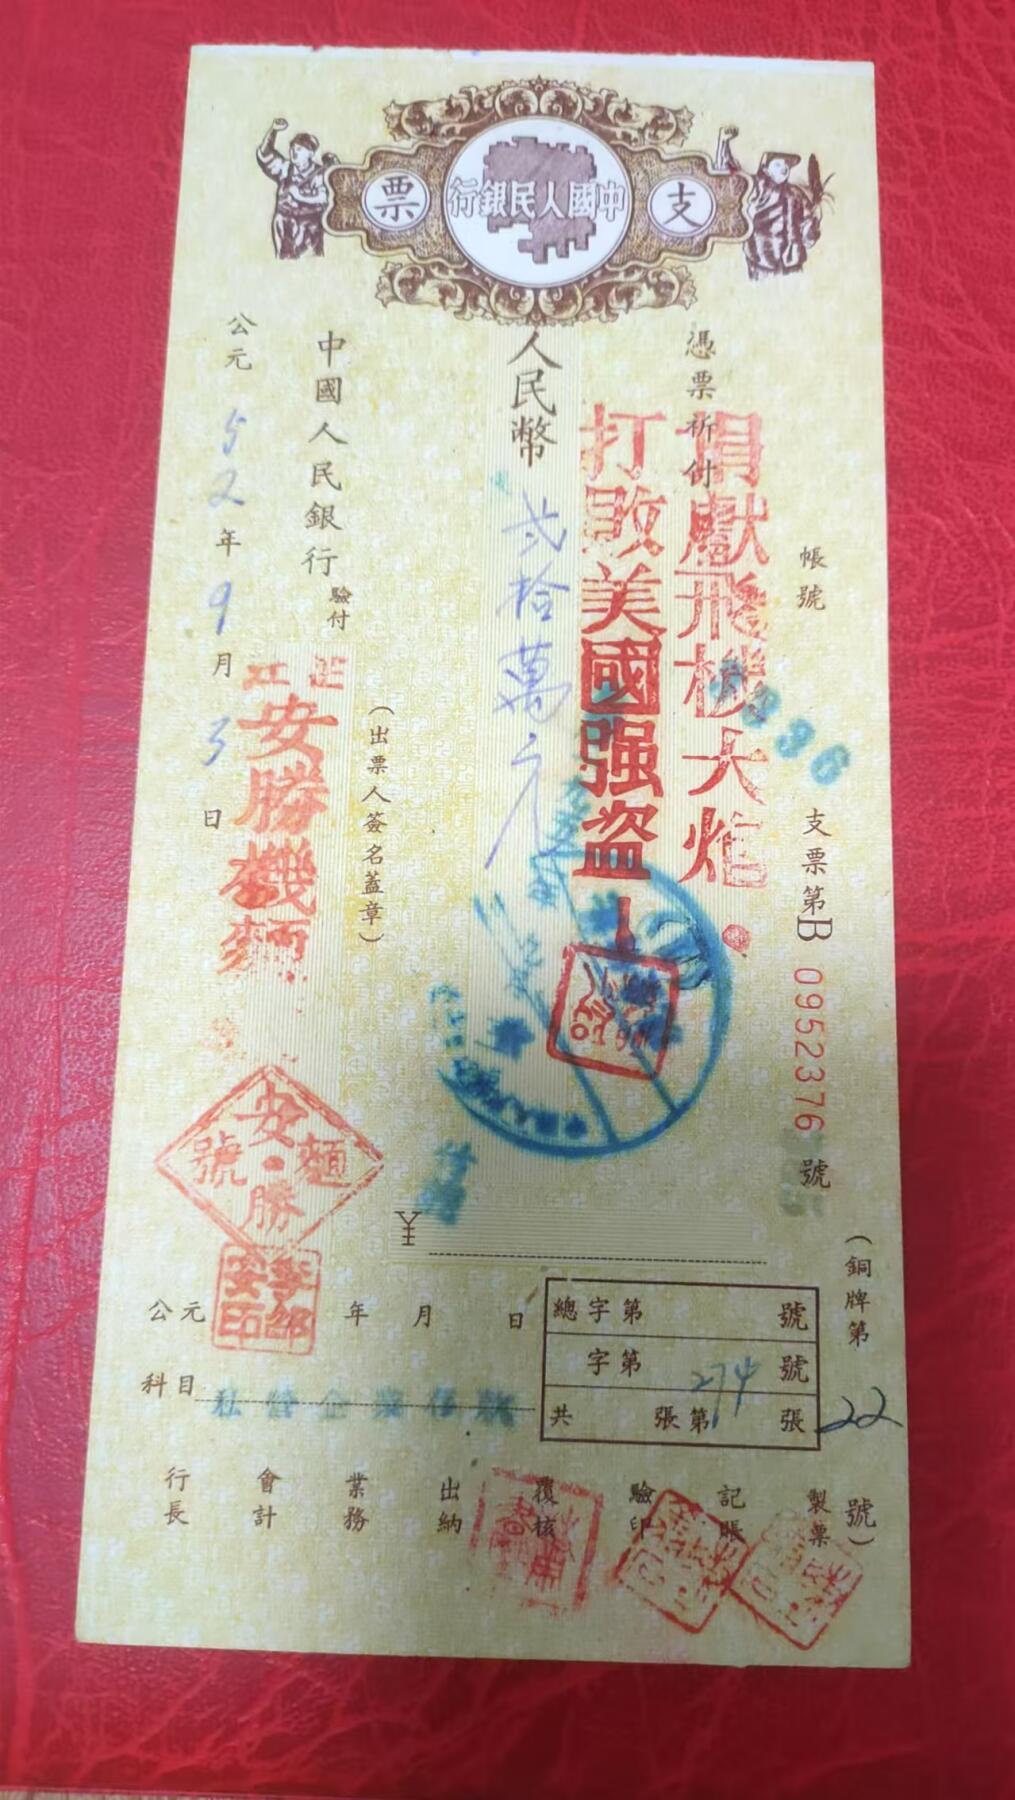 支票
中國人民銀行
帳號
支票第B 0952376 號
(銅牌第22號)
憑票祈付
捐獻飛機大炮
打敗美國强盜
人民幣 弍拾萬元
¥
(出票人簽名蓋章)
中國人民銀行 驗付
公元52年9月3日
安勝機麵
安勝麵號
公元 年 月 日
總字第 號
字第 號
共 張第 張
274
科目 私營企業存款
製票
記賬
驗印
覆核
出納
業務
會計
行長